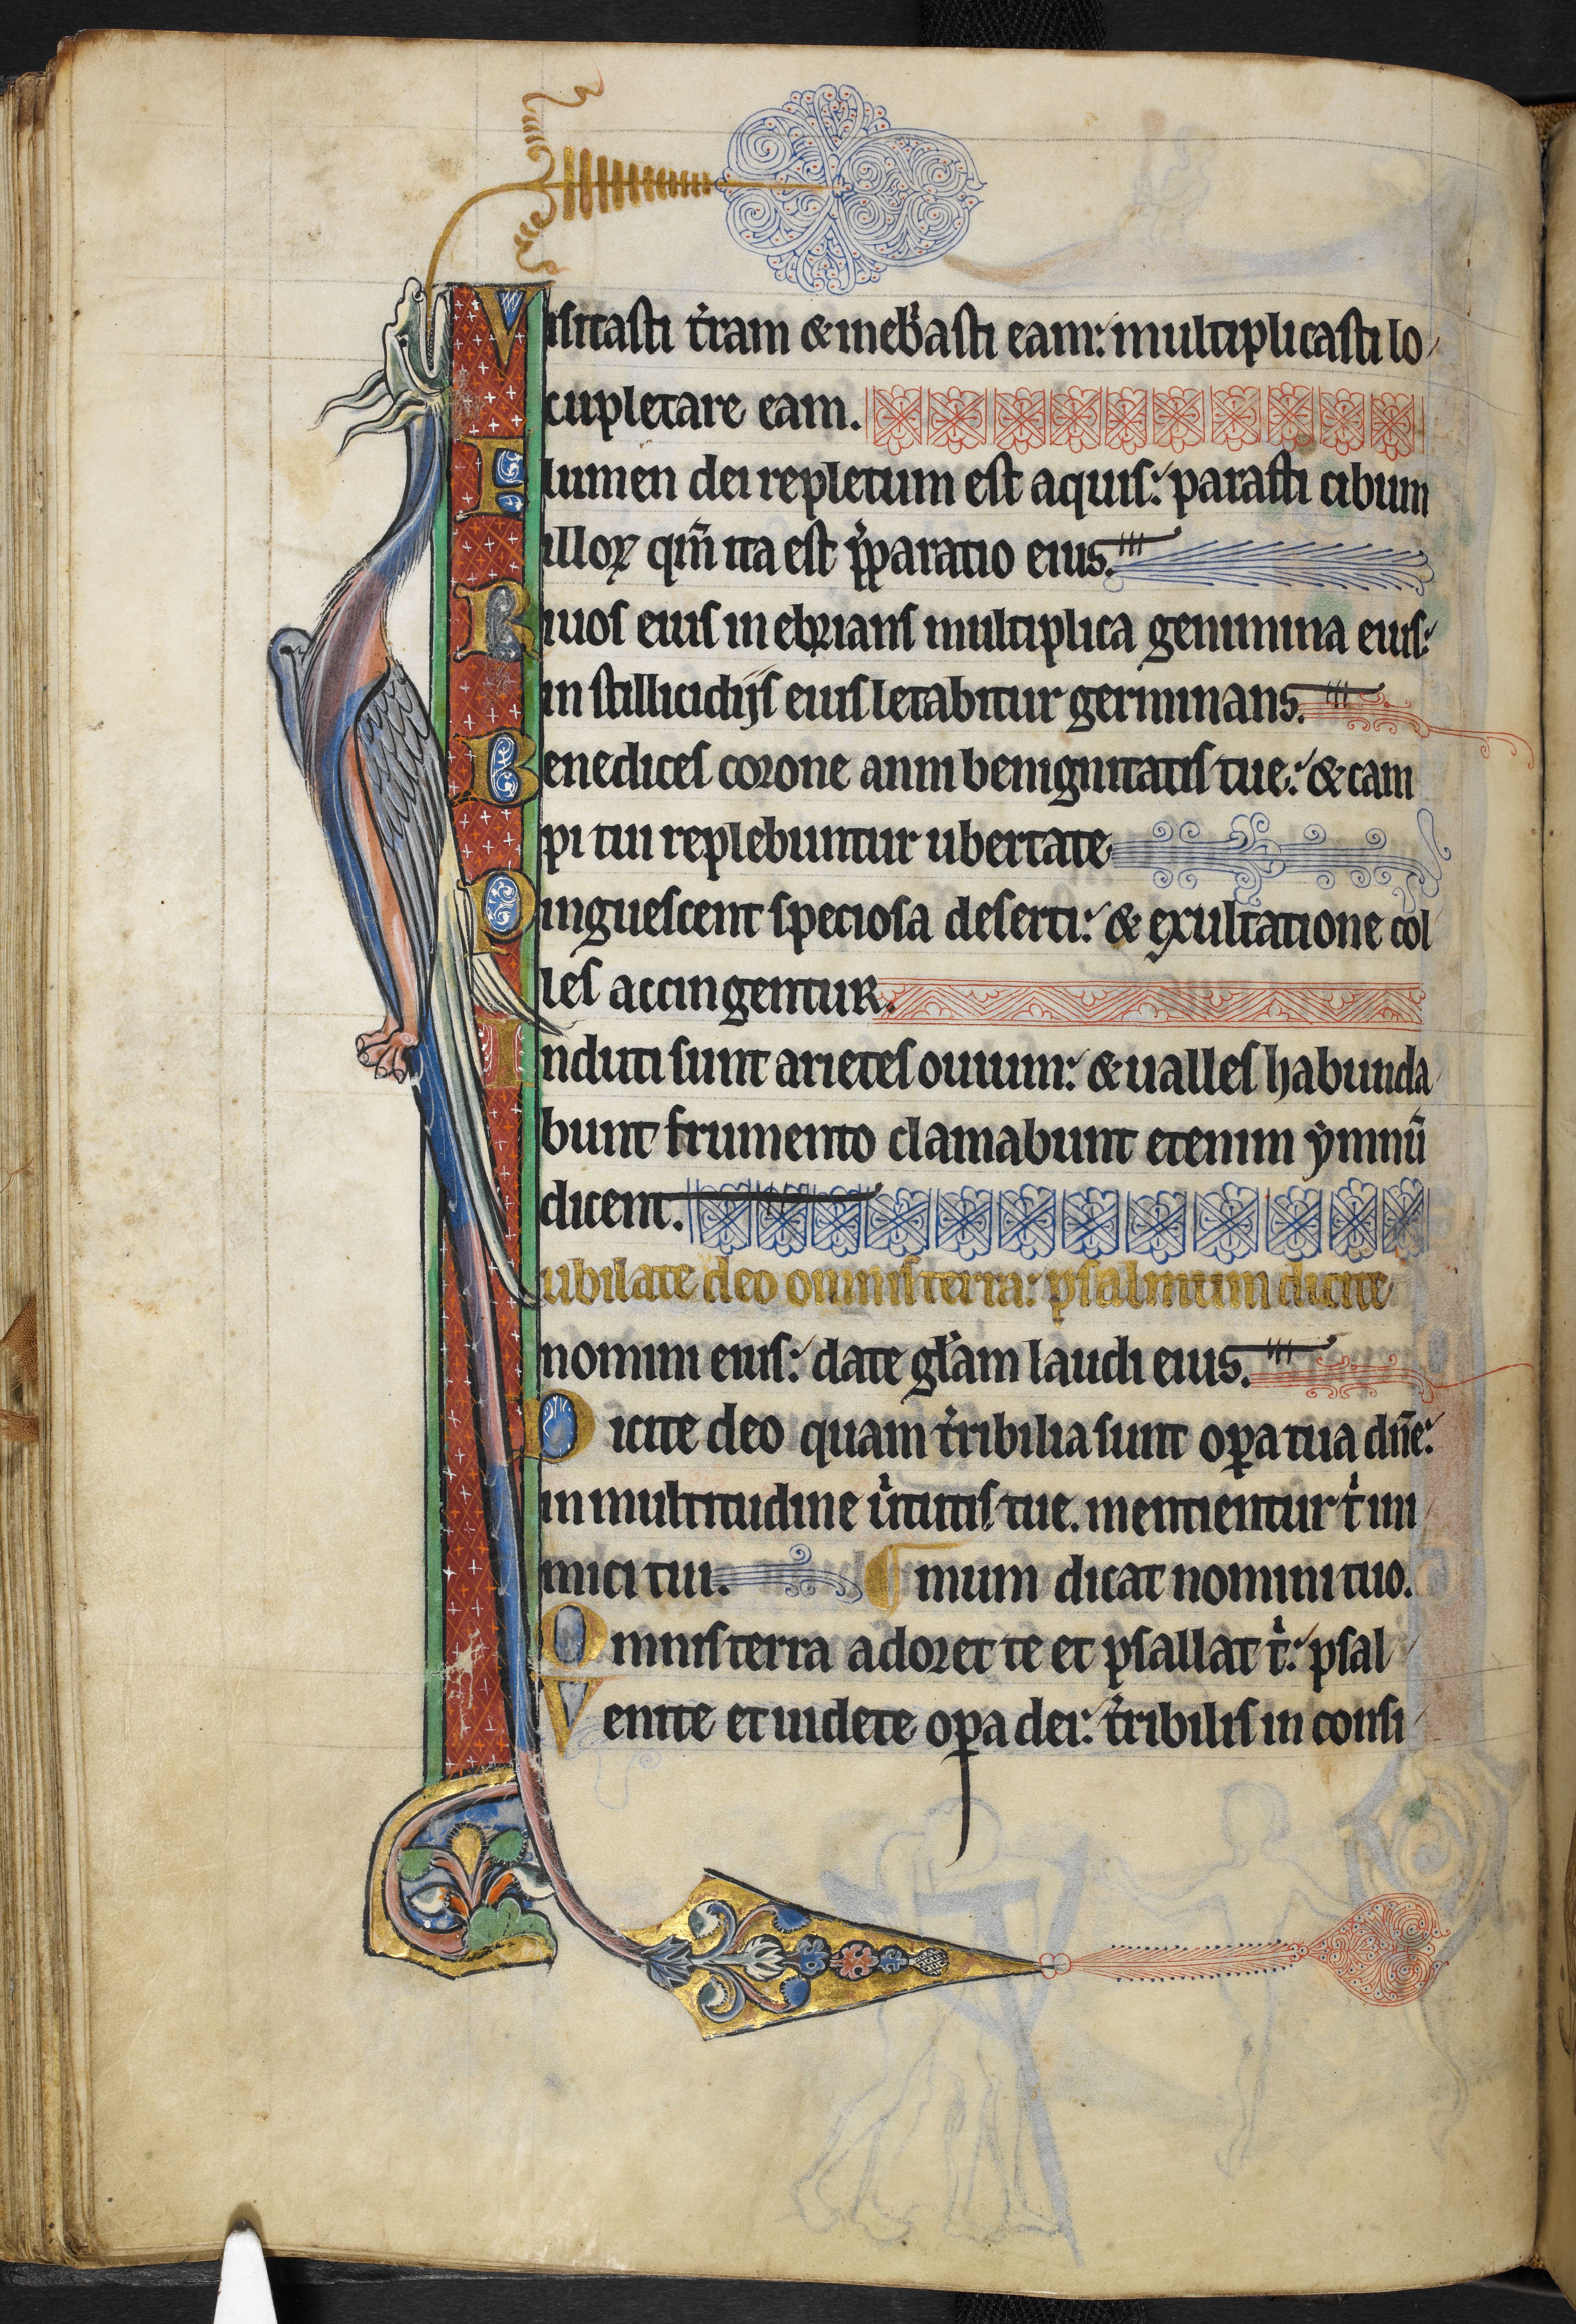 Visitasti t̉ram & ineb̉asti eam: multiplicasti lo
cupletare eam.
Flumen dei repletum est aquis: parasti cibum
illoꝝ qm̄ ita est p̉paratio eius.
Riuos eius inebrians multiplica genimina eius:
in stillicidijs eius letabitur germinans.
Benedices corone anni benignitatis tue: & cam
pi tui replebuntur ubertate
Pinguescent speciosa deserti: & exultatione col
les accingentur.
Induti sunt arietes ouium: & ualles habunda
bunt frumento clamabunt etenim ẏmnū
dicent.
Iubilate deo omnis terra: psalmum dicite
nomini eius: date gl̉am laudi eius.
Dicite deo quam t̉ribilia sunt oꝑa tua dn̄e:
in multitudine ủtutis tue. mentientur t̉ ini
mici tui. mum dicat nomini tuo.
Omnis terra adoret te et psallat t̉: psal
Venite et uidete oꝑa dei: t̉ribilis in consi